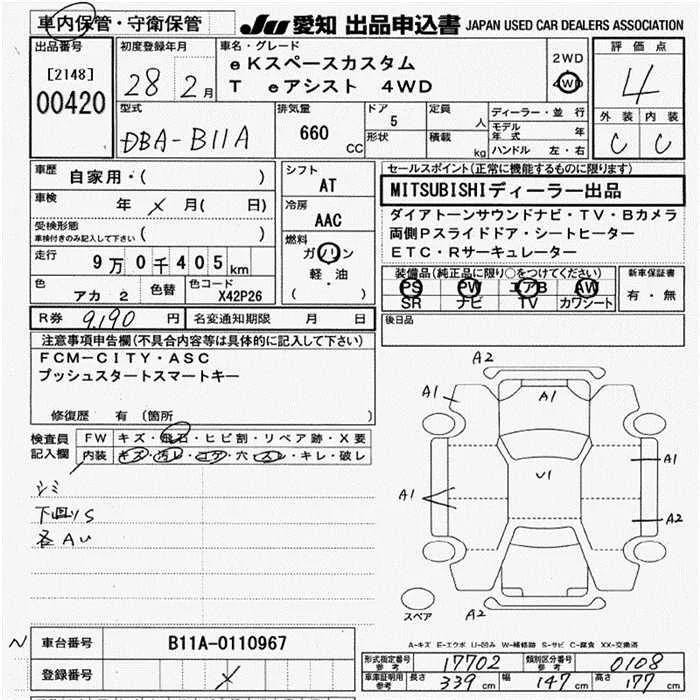 車内保管・守衛保管
JU 愛知 出品申込書 JAPAN USED CAR DEALERS ASSOCIATION
出品番号 [2148] 00420
初度登録年月 28 2月
車名・グレード
eKスペースカスタム
T eアシスト 4WD
2WD
4WD
評価点 4
外装 内装
C C
型式 DBA-B11A
排気量 660 CC
ドア 5
形状
定員 人
積載 kg
ディーラー・並行
モデル年式 年
ハンドル 左・右
車歴 自家用・( )
車検 年 × 月( 日)
受検形態
車検付きのみ記入して下さい ( )
走行 9万0千405km
色 アカ 2 色替 色コード X42P26
シフト AT
冷房 AAC
燃料 ガソリン
軽・油
( )
セールスポイント(正常に機能するものに限ります)
MITSUBISHIディーラー出品
ダイアトーンサウンドナビ・TV・Bカメラ
両側Pスライドドア・シートヒーター
ETC・Rサーキュレーター
装備品(純正品に限り○をつけてください)
PS PW エアB AW
SR ナビ TV カワシート
新車保証書
有・無
R券 9,190 円 名変通知期限 月 日
後日品
注意事項申告欄(不具合内容等は具体的に記入して下さい)
FCM-CITY・ASC
プッシュスタートスマートキー
修復歴 有(箇所 )
検査員記入欄
FW キズ・飛石・ヒビ割・リペア跡・X要
内装 キズ・汚レ・コゲ・穴・スレ・キレ・破レ
シミ
下回りS
各AU
A2
A1
A1
A1
A1
U1
A2
A2
スペア
A-キズ E-エクボ U-凹み W-補修跡 S-サビ C-腐食 XX-交換済
N 車台番号 B11A-0110967
登録番号 ×
形式指定番号 参考 17702 類別区分番号 参考 0108
車庫証明用 参考 長さ 339cm 幅 147cm 高さ 177cm